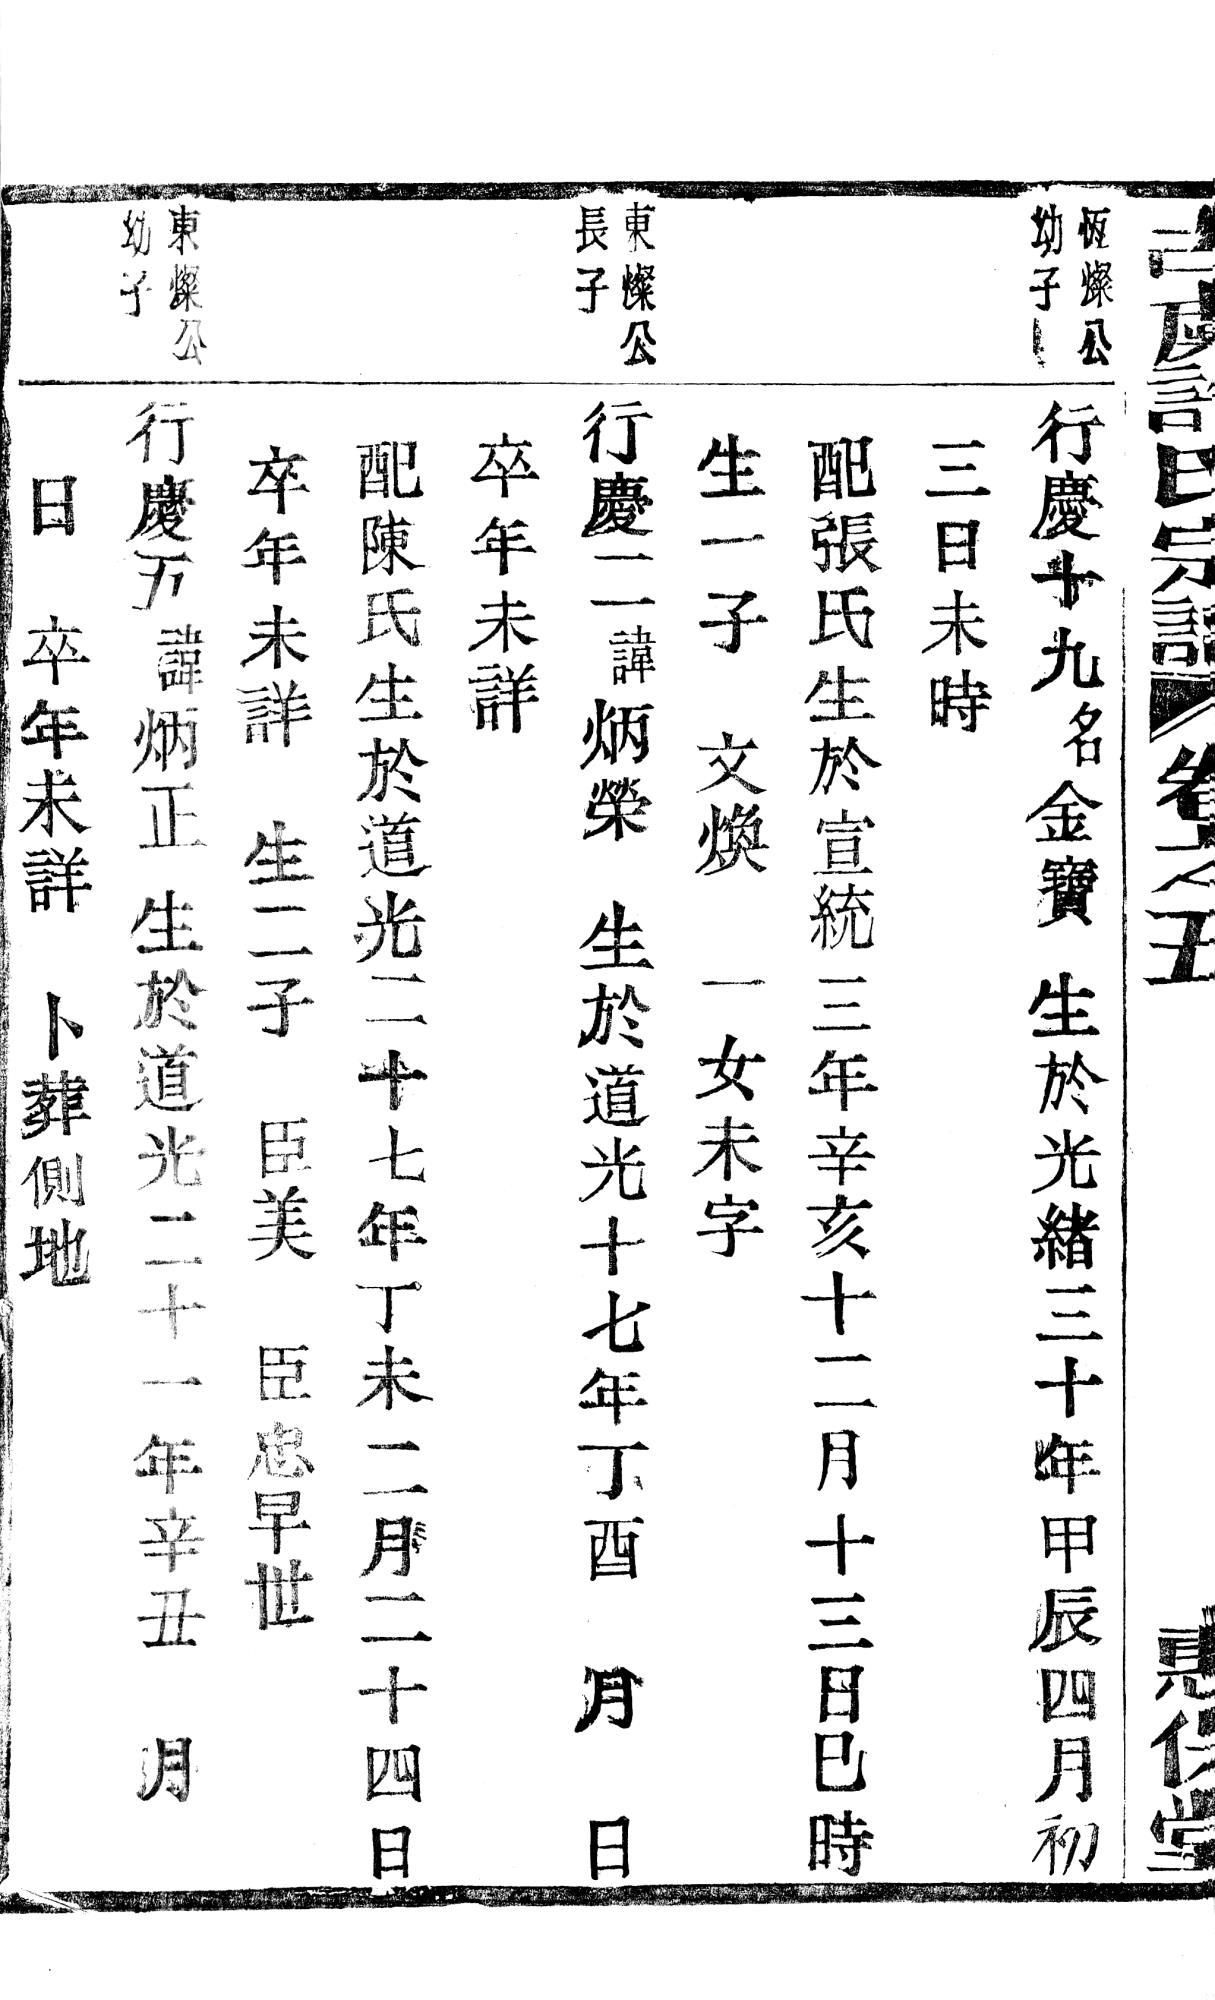 許氏宗譜 卷之五 惠保堂
恆燦公
幼子
行慶十九名金寶 生於光緒三十年甲辰四月初
三日未時
配張氏生於宣統三年辛亥十二月十三日巳時
生一子 文煥 一女未字
東燦公
長子
行慶二諱炳榮 生於道光十七年丁酉 月 日
卒年未詳
配陳氏生於道光二十七年丁未二月二十四日
卒年未詳 生二子 臣美 臣忠早世
東燦公
幼子
行慶五諱炳正 生於道光二十一年辛丑 月
日 卒年未詳 卜葬側地